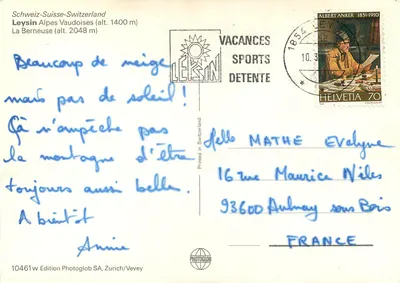 Schweiz-Suisse-Switzerland
Leysin Alpes Vaudoises (alt. 1400 m)
La Berneuse (alt. 2048 m)
LEYSIN
VACANCES
SPORTS
DETENTE
1854
10.3
ALBERT ANKER 1831-1910
HELVETIA 70
Beaucoup de neige
mais pas de soleil!
Çà n'empêche pas
la montagne d'être
toujours aussi belle.
A bientôt
Annie
Printed in Switzerland
Melle MATHÉ Evelyne
16 rue Maurice Nilès
93600 Aulnay sous Bois
FRANCE
10461w Edition Photoglob SA, Zurich/Vevey